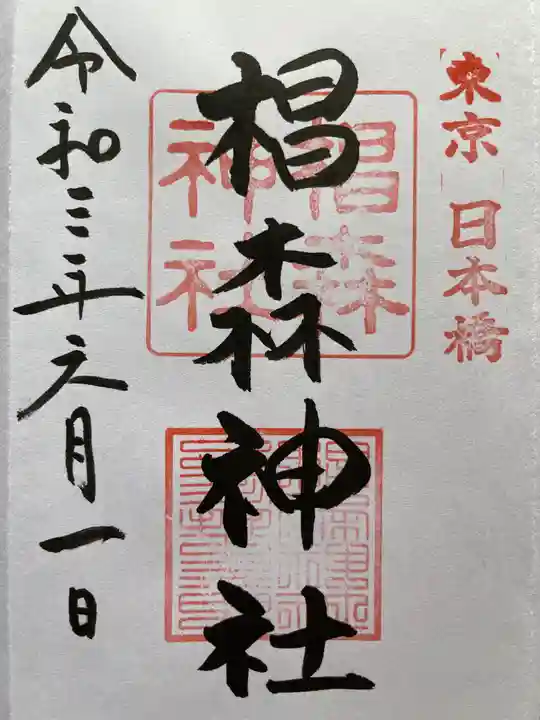 東京 日本橋
椙森神社
椙森神社
令和三年六月一日